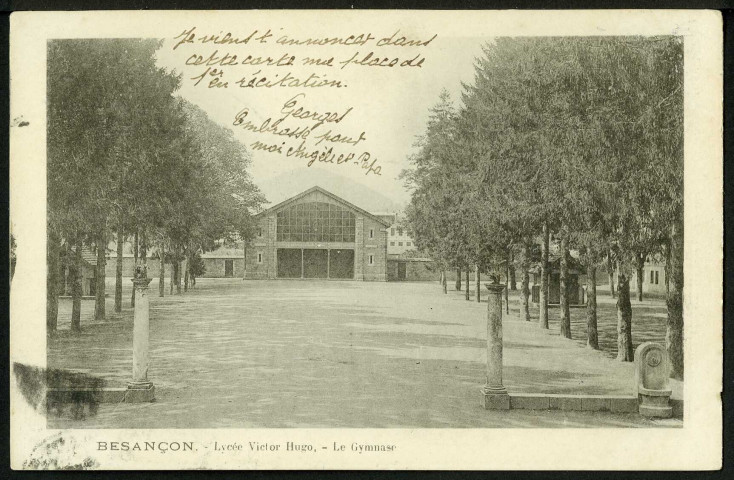 Je viens t'annoncer dans
cette carte ma place de
1er en récitation.
Georges
Embrasse pour
moi Angèle et Papa
BESANÇON. - Lycée Victor Hugo, - Le Gymnase